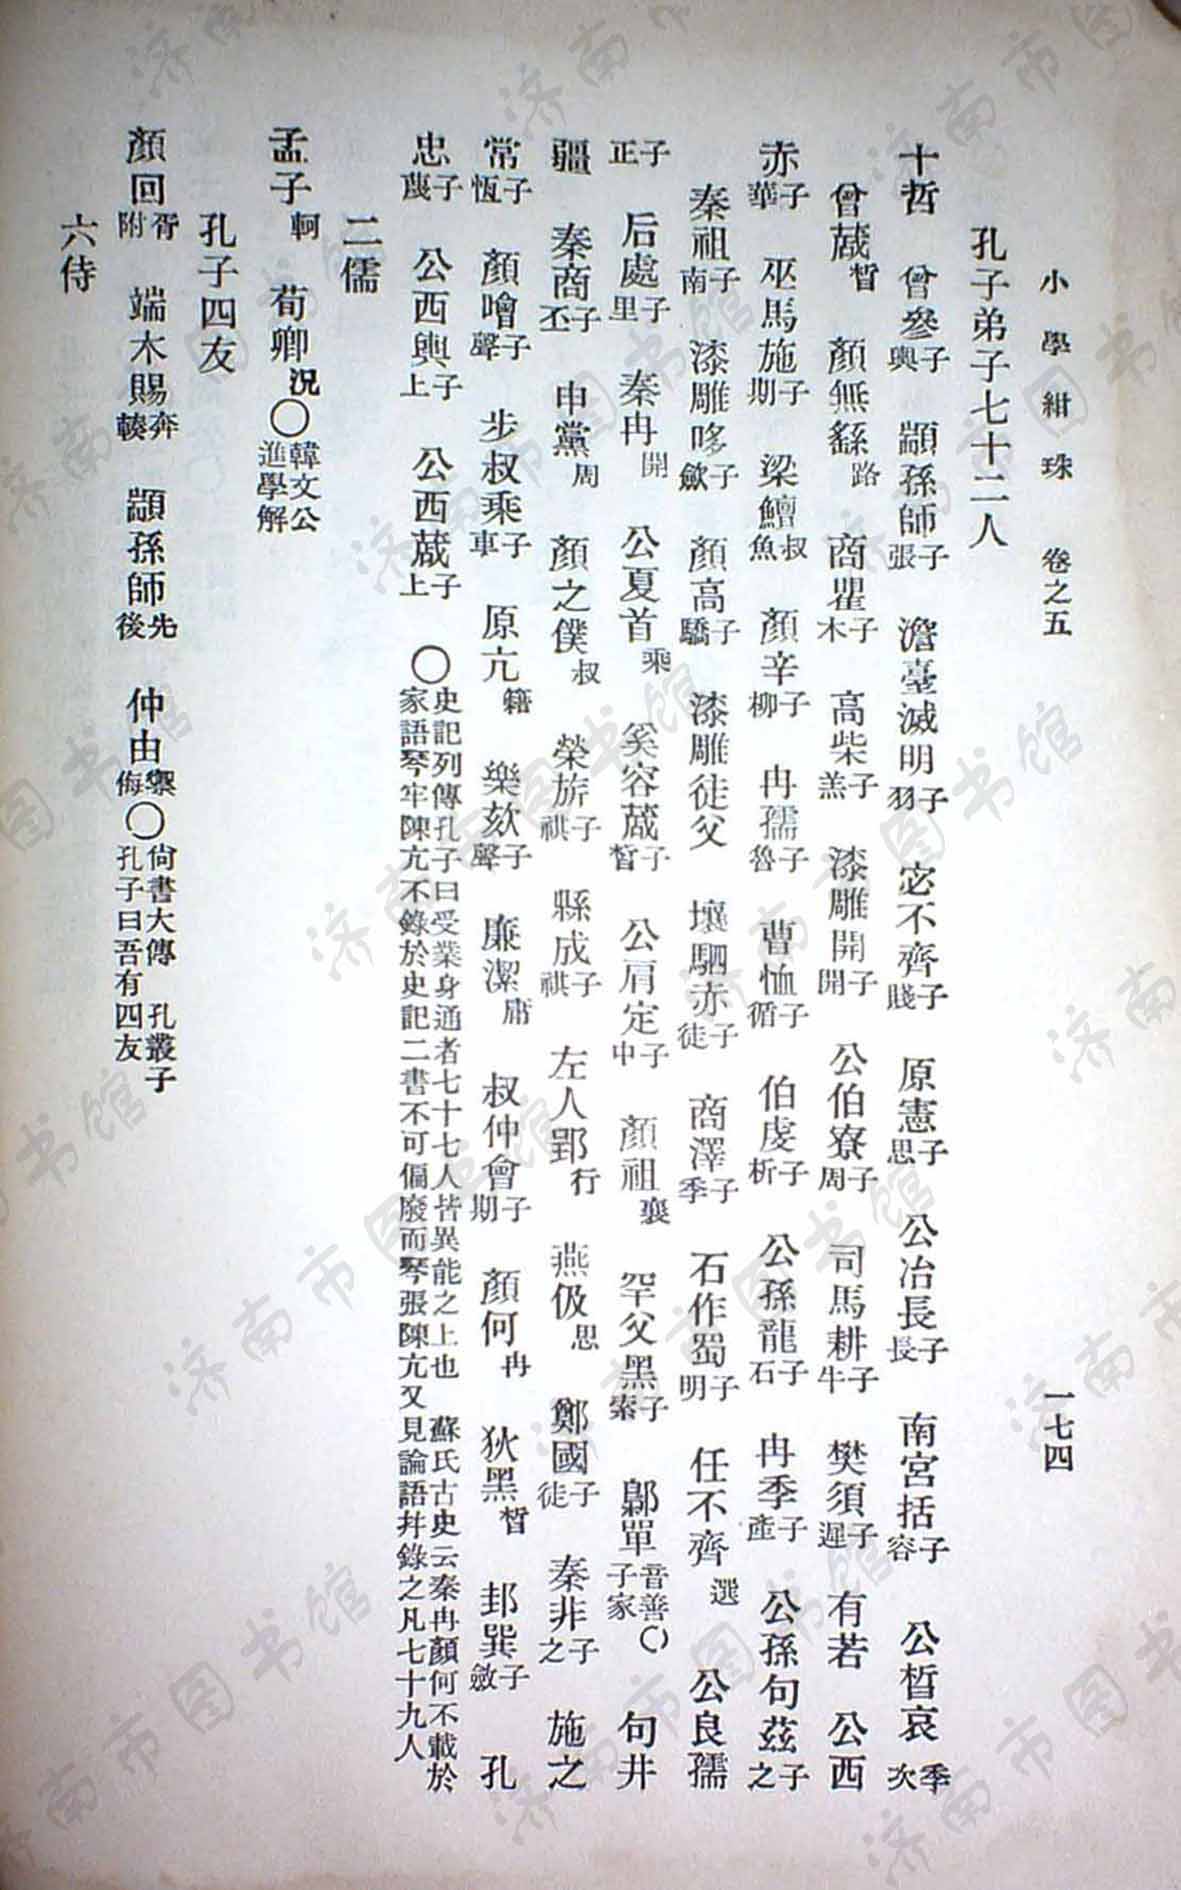 小學紺珠 卷之五 一七四
孔子弟子七十二人
十哲 曾參子輿 顓孫師子張 澹臺滅明子羽 宓不齊子賤 原憲子思 公冶長子長 南宮括子容 公晳哀季次
曾蒧晳 顏無繇路 商瞿子木 高柴子羔 漆雕開子開 公伯寮子周 司馬耕子牛 樊須子遲 有若 公西
赤子華 巫馬施子期 梁鱣叔魚 顏辛子柳 冉孺子魯 曹恤子循 伯虔子析 公孫龍子石 冉季子產 公孫句茲子之
秦祖子南 漆雕哆子歛 顏高子驕 漆雕徒父 壤駟赤子徒 商澤子季 石作蜀子明 任不齊選 公良孺
子正 后處子里 秦冉開 公夏首乘 奚容蒧子晳 公肩定子中 顏祖襄 罕父黑子索 鄡單音善〇子家 句井
疆 秦商子丕 申黨周 顏之僕叔 榮旂子祺 縣成子祺 左人郢行 燕伋思 鄭國子徒 秦非子之 施之
常子恆 顏噲子聲 步叔乘子車 原亢籍 樂欬子聲 廉潔庸 叔仲會子期 顏何冉 狄黑晳 邽巽子斂 孔
忠子蔑 公西輿子上 公西蒧子上 〇史記列傳孔子曰受業身通者七十七人皆異能之上也 蘇氏古史云秦冉顏何不載於
家語琴牢陳亢不錄於史記二書不可偏廢而琴張陳亢又見論語幷錄之凡七十九人
二儒
孟子軻 荀卿況〇韓文公進學解
孔子四友
顏回胥附 端木賜奔輳 顓孫師先後 仲由禦侮〇尙書大傳 孔叢子
孔子曰吾有四友
六侍
济南市图书馆